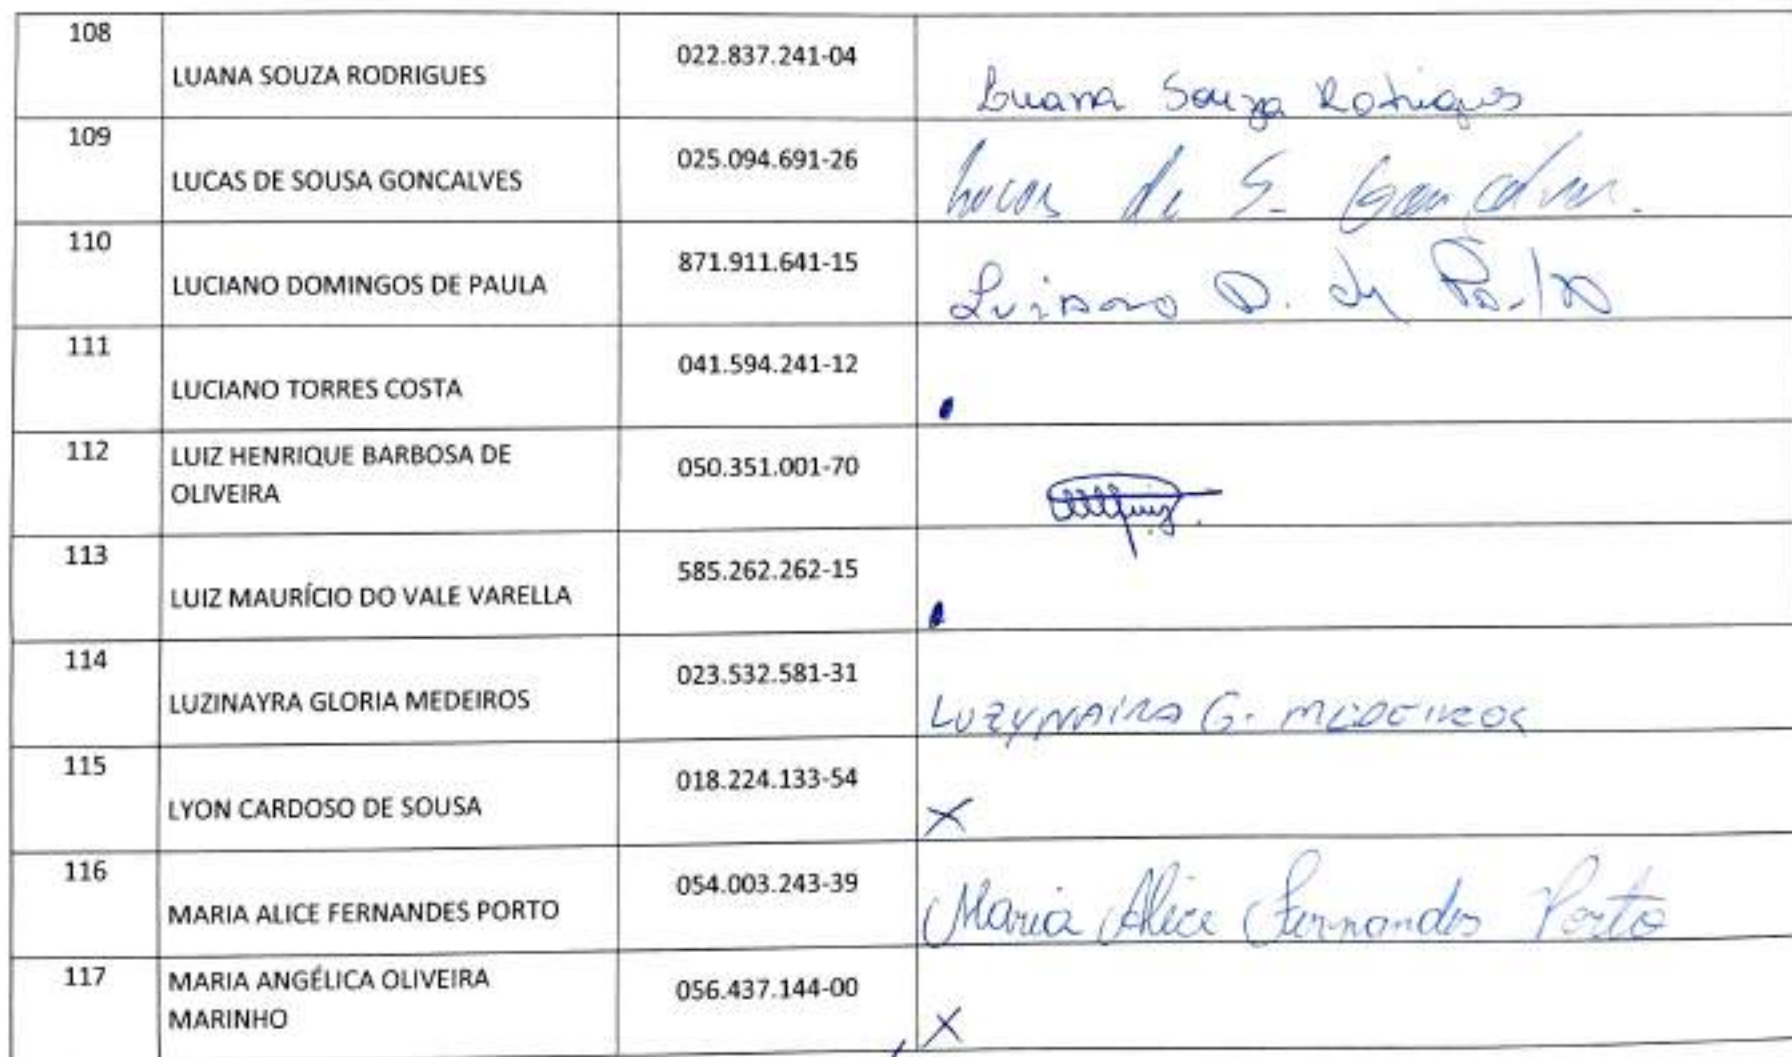 108 LUANA SOUZA RODRIGUES 022.837.241-04 Luana Souza Rodrigues
109 LUCAS DE SOUSA GONCALVES 025.094.691-26 Lucas de S. Goncalves.
110 LUCIANO DOMINGOS DE PAULA 871.911.641-15 Luciano D. de Paula
111 LUCIANO TORRES COSTA 041.594.241-12
112 LUIZ HENRIQUE BARBOSA DE
OLIVEIRA 050.351.001-70
113 LUIZ MAURÍCIO DO VALE VARELLA 585.262.262-15
114 LUZINAYRA GLORIA MEDEIROS 023.532.581-31 LUZYNAIRA G. MEDEIROS
115 LYON CARDOSO DE SOUSA 018.224.133-54 X
116 MARIA ALICE FERNANDES PORTO 054.003.243-39 Maria Alice Fernandes Porto
117 MARIA ANGÉLICA OLIVEIRA
MARINHO 056.437.144-00 X